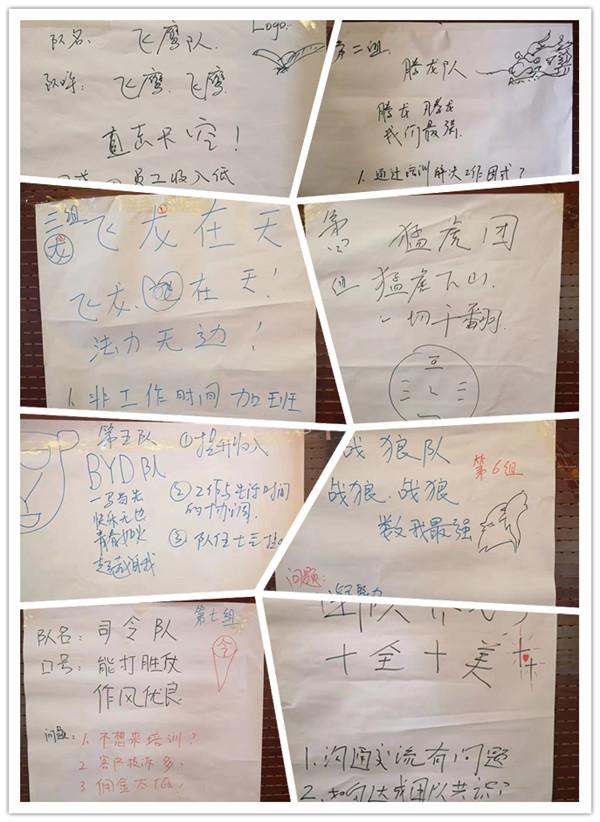 队名: 飞鹰队.
Logo:
队呼: 飞鹰. 飞鹰.
直击长空!
员工收入低
第二组
腾龙队
腾龙 腾龙
我们最强.
1. 通过培训解决工作困惑?
三组
龙
飞龙在天
飞龙. 在天!
法力无边!
1. 非工作时间加班
第四组
猛虎团
猛虎下山.
一切干翻.
第五队
BYD队
一马当先
快乐无边
青春如火
超越自我
① 提升收入
② 工作与生活时间
的协调.
③ 队伍士气
战狼队
第6组
战狼. 战狼
数我最强
问题:
凝聚力
第七组
队名: 司令队
口号: 能打胜仗
作风优良.
令
问题: 1. 不想来培训?
2. 客户投诉多!
3 佣金太低!
团队
十全十美
1. 沟通交流有问题
2. 如何达成团队共识?